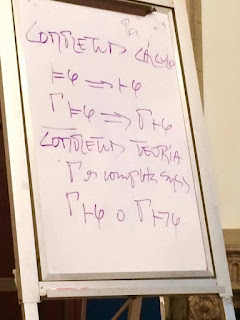 COMPLETUD CÁLCULO
⊨φ ⟹ ⊢φ
Γ⊨φ ⟹ Γ⊢φ
COMPLETUD TEORÍA
Γ es completa
Γ⊢φ o Γ⊢¬φ